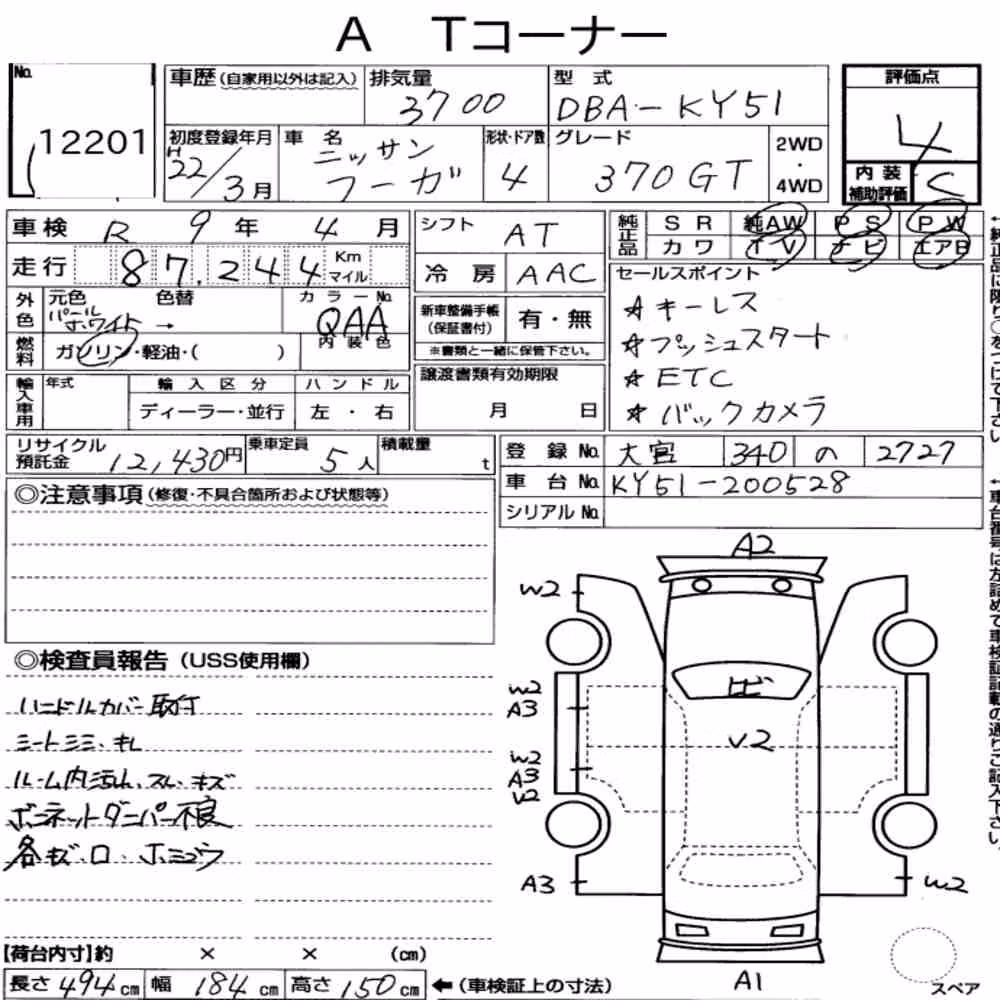 A Tコーナー
No. 12201
車歴(自家用以外は記入) 排気量 3700 型式 DBA-KY51
初度登録年月 H22/3月 車名 ニッサン フーガ 形状・ドア数 4 グレード 370GT 2WD・4WD
評価点 4
内装補助評価 C
車検 R 9年 4月
走行 87,244 Km マイル
シフト AT
冷房 AAC
純正品 SR 純AW PS PW
カワ TV ナビ エアB
外色 元色 パールホワイト 色替 → カラーNo. QAA
燃料 ガソリン・軽油・( ) 内装色
新車整備手帳(保証書付) 有・無
※書類と一緒に保管下さい。
セールスポイント
☆キーレス
☆プッシュスタート
☆ETC
☆バックカメラ
輸入車用 年式 輸入区分 ディーラー・並行 ハンドル 左・右
譲渡書類有効期限 月 日
リサイクル預託金 12,430円 乗車定員 5人 積載量 t
登録No. 大宮 340 の 2727
車台No. KY51-200528
シリアルNo.
◎注意事項(修復・不具合箇所および状態等)
◎検査員報告(USS使用欄)
ハンドルカバー取付
シートシミ、キレ
ルーム内汚れ、スレ、キズ
ボンネットダンパー不良
各キズ、ロ、ホミュウ
A2
W2
W2
A3
ヒビ
V2
W2
A3
V2
A3
W2
A1
スペア
【荷台内寸】約 × × (cm)
長さ 494cm 幅 184cm 高さ 150cm ←(車検証上の寸法)
←純正品に限り○をつけて下さい。
←車台番号は左詰めで車検証記載の通りご記入下さい。